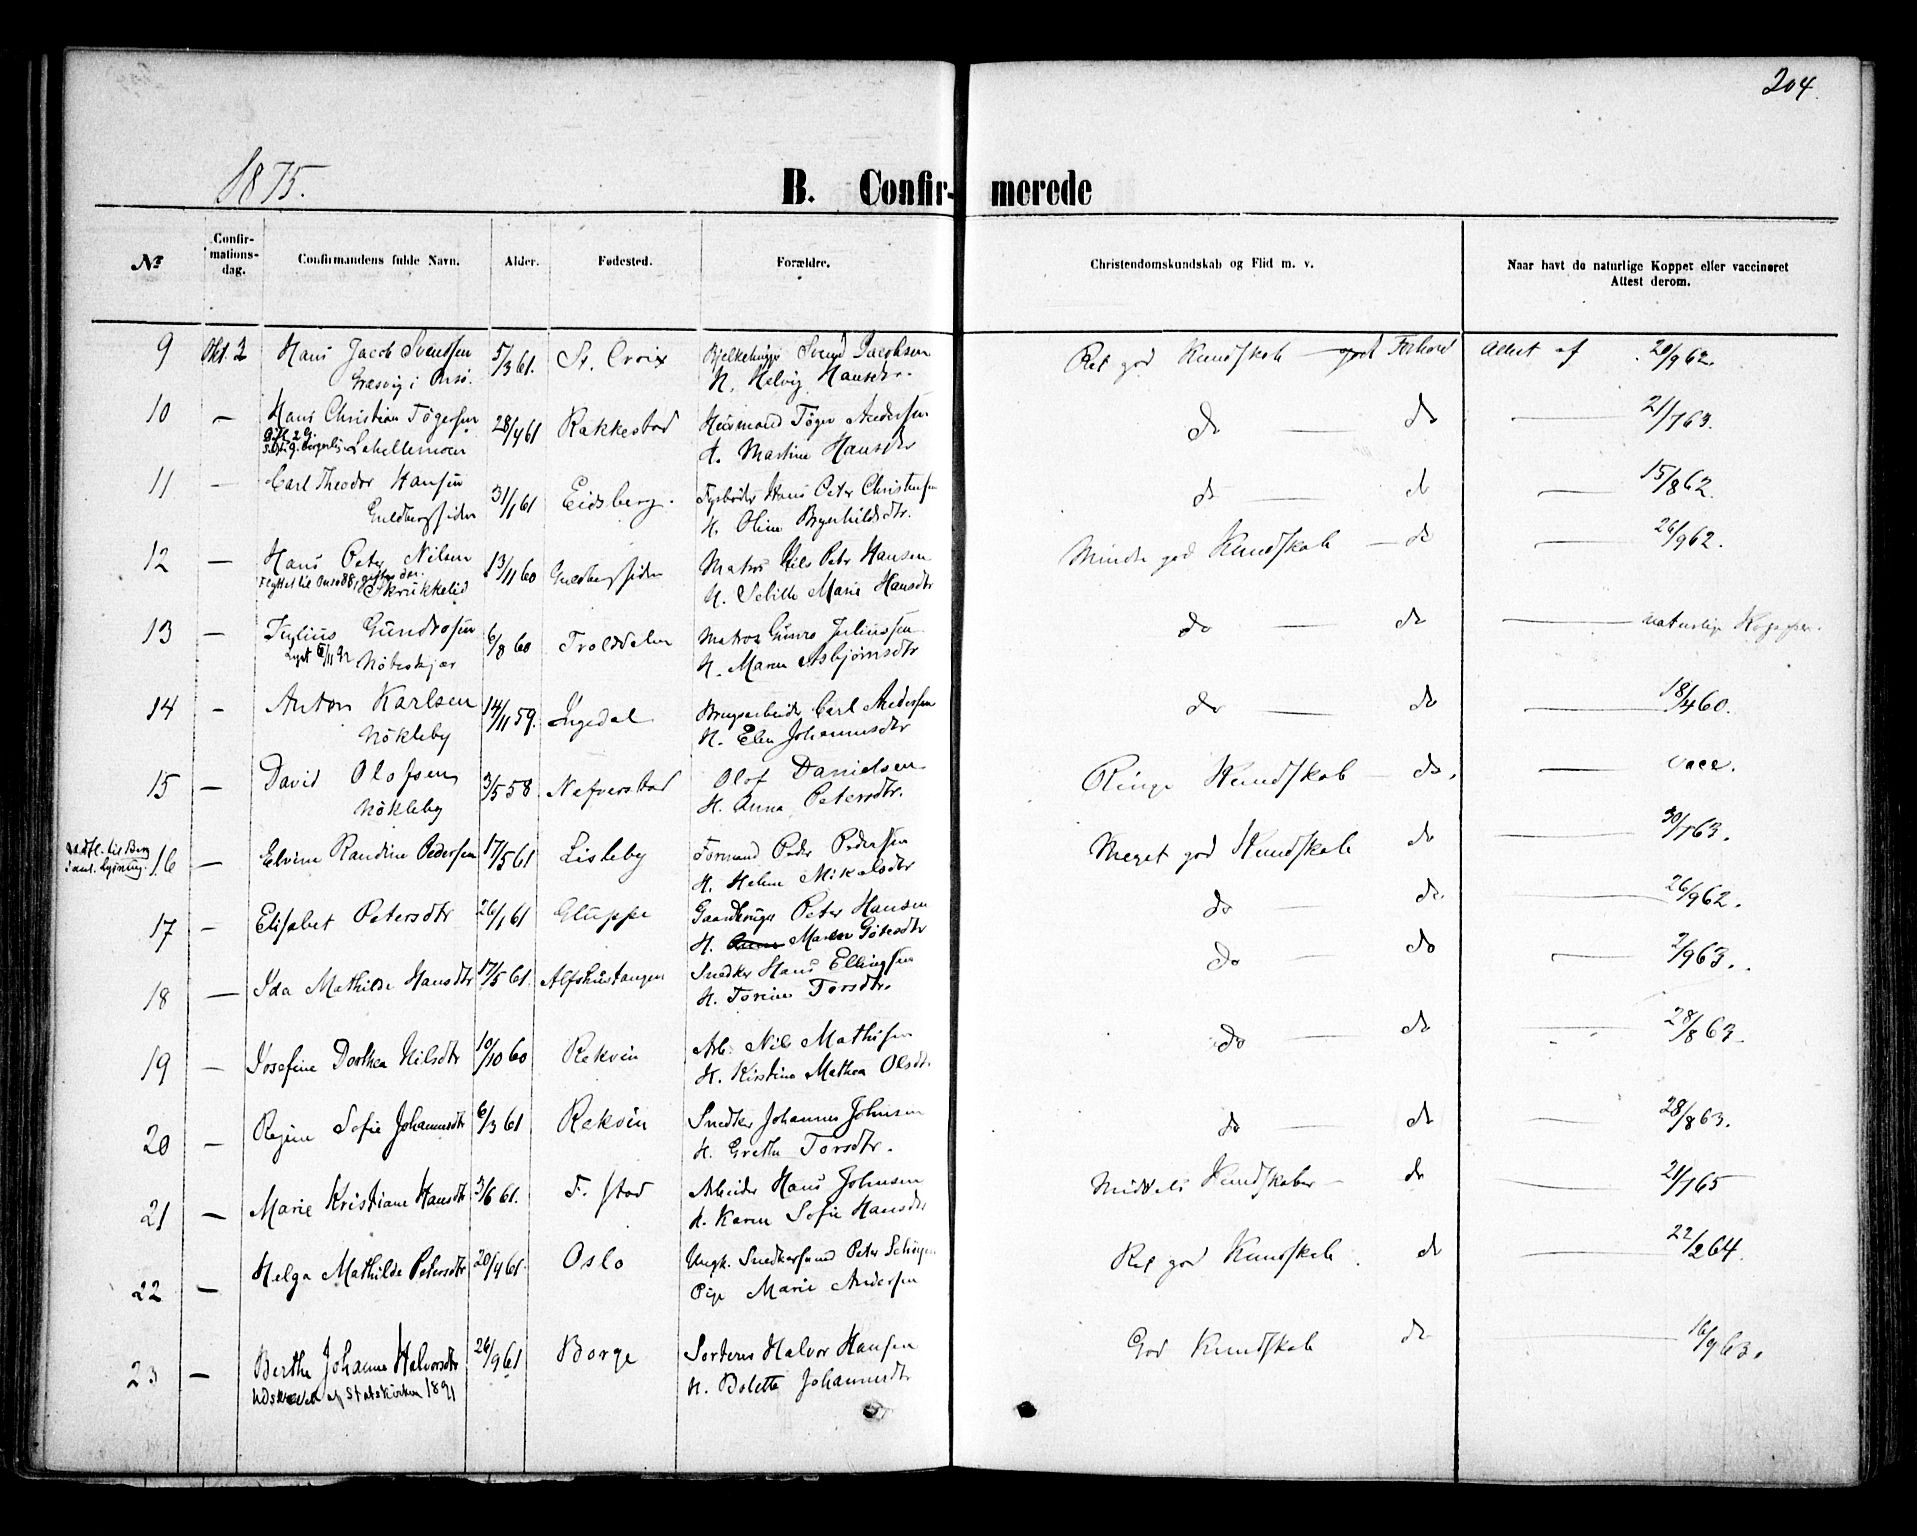 204.
1875.
B. Confir- merede
No
Confir-
mations-
dag.
Confirmandens fulde Navn.
Alder.
Fødested.
Forældre.
Christendomskundskab og Flid m. v.
Naar havt de naturlige Kopper eller vaccineret
Attest derom.
9 Okt. 2 Hans Jacob Svendsen 5/3 61. St. Croix Svend Jacobsen Ret god Kundskab — god Forhold Attest af 20/9 62.
Græsvig i Onsø. H. Helvig Hansdtr.
10 — Hans Christian Tøgersen 28/4 61 Rakkestad Huusmand Tøger Andersen do — do — 21/7 63.
Lahellemoen H. Martine Hansdtr
11 — Carl Theodor Hansen 31/1 61 Eidsberg. Hans Peter Christensen do — do — 15/8 62.
Guldbergsiden H. Oline Brynhildsdtr.
12 — Hans Peter Nilsen 13/11 60 Guldbergsiden Matros Nils Peter Hansen Mindre god Kundskab — do — 26/9 62.
Flyttet til Onsø 88, H. Sebille Marie Hansdtr
Skrukkelid
13 — Julius Gundrosen 6/8 60 Trolddalen Matros Gunro Juliussen do — do — naturlige Kopper.
Nøteskjær H. Maren Asbjørnsdtr
14 — Anton Karlsen 14/11 59. Ingedal Brugsarbeider Carl Andersen do — do — 18/4 60.
Nökleby H. Elen Johannesdtr
15 — David Olofsen 3/5 58 Nefverstad Olof Danielsen Ringe Kundskab — do. — vacc.
Nökleby H. Anna Petersdtr.
Udfl. til Berg
16 — Elvine Randine Pedersen 17/5 61 Lisleby Formand Peder Pedersen Meget god Kundskab do — 30/1 63.
H. Helene Mikalsdtr
17 — Elisabet Petersdtr 26/1 61 Gluppe Peter Hansen do — do. — 26/9 62.
H. Maren
18 — Ida Mathilde Hansdtr 17/5 61. Alfshustangen Snedker Hans Ellingsen do do — 2/9 63.
H. Torine Torsdtr.
19 — Josefine Dorthea Nilsdtr 10/10 60 Rekvin Arb. Nils Mathisen do — do 28/8 63.
H. Kirstine Mathea Olsdtr.
20 — Regine Sofie Johannesdtr 6/3 61 Rekvin Snedker Johannes Johnsen do — do — 28/8 63.
H. Grethe Torsdtr.
21 — Marie Kristiane Hansdtr 3/6 61. F. stad Arbeider Hans Johnsen Middels Kundskaber — do — 21/7 65
H. Karen Sofie Hansdtr
22 — Helga Mathilde Petersdtr 20/4 61. Oslo Ungk. Snedkersvend Peter Ret god Kundskab. do — 22/2 64.
Pige Marie Andersen
23 — Berthe Johanne Halvorsdtr 26/9 61 Borge Sorterer Halvor Hansen God Kundskab do — 16/9 63.
Udskrevet af Statskirken 1891 H. Bolette Johannesdtr